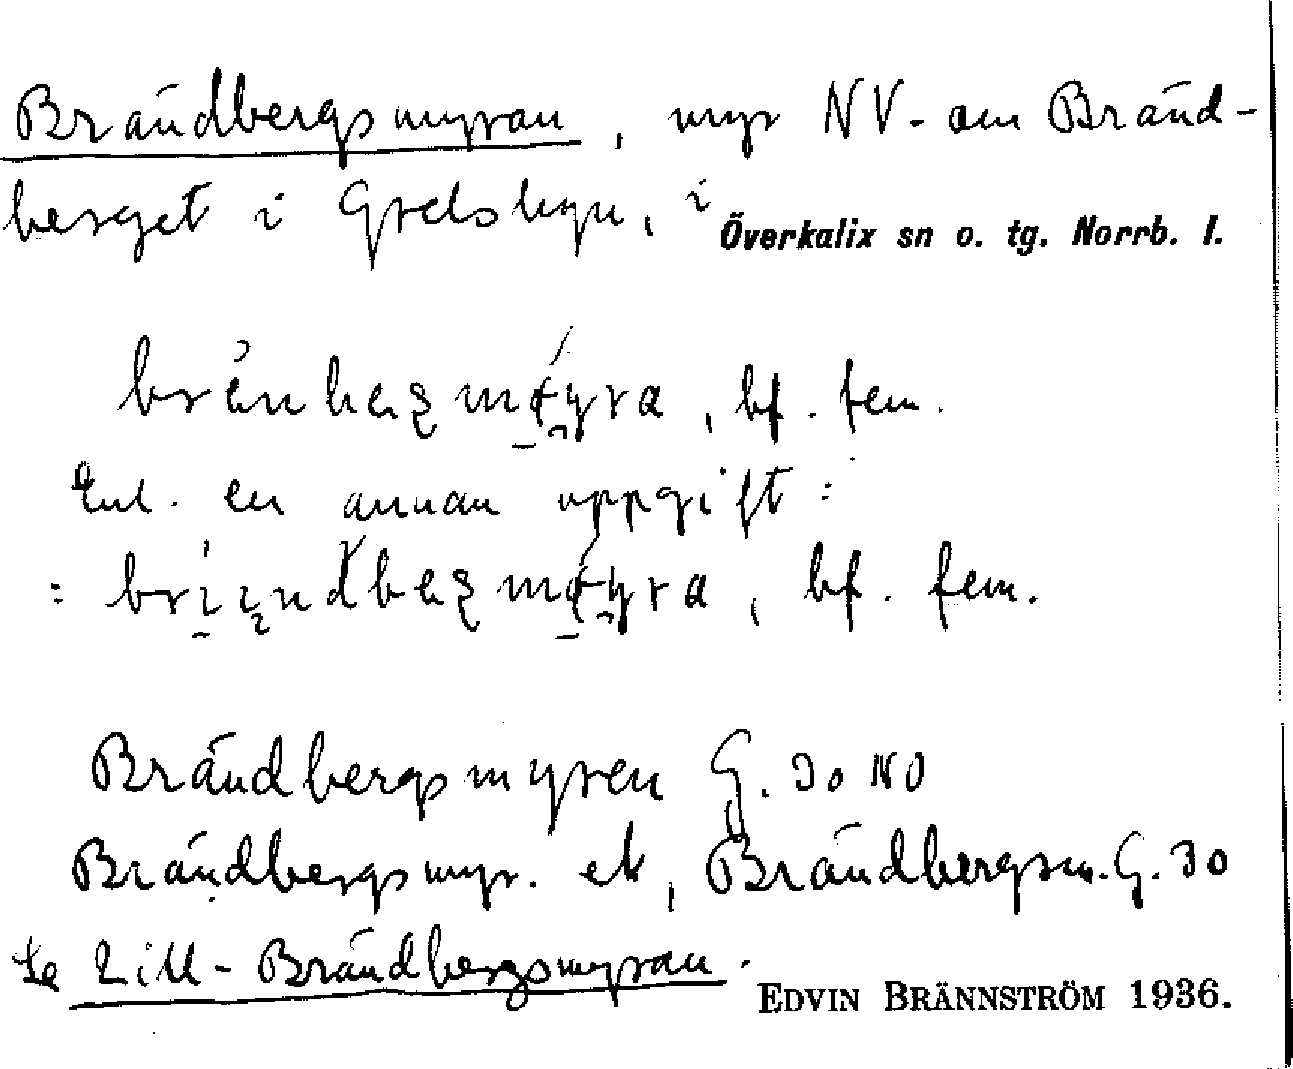 Brändbergsmyran, myr NV. om Bränd-
berget i Grelsbyn, i Överkalix sn o. tg. Norrb. l.
bf. fem.
Enl. en annan uppgift:
bf. fem.
Brändbergsmyren G. 30 NO
Brändbergsmyr. ek, Brändbergsm. G. 30
Se Lill-Brändbergsmyran.
EDVIN BRÄNNSTRÖM 1936.